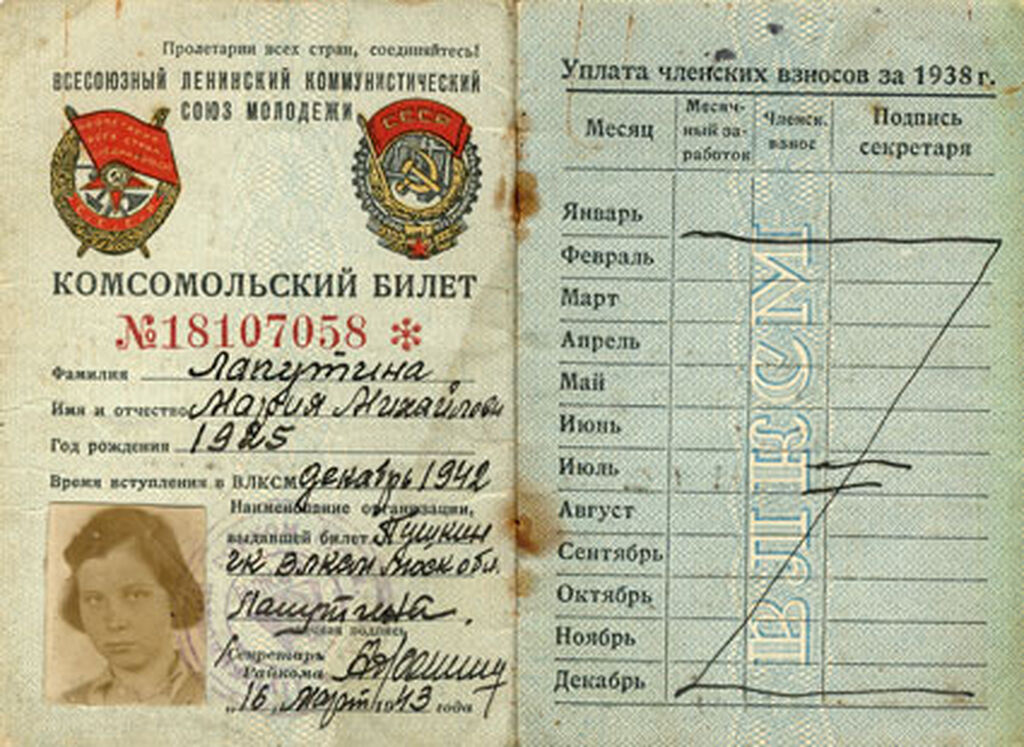 Пролетарии всех стран, соединяйтесь!
ВСЕСОЮЗНЫЙ ЛЕНИНСКИЙ КОММУНИСТИЧЕСКИЙ
СОЮЗ МОЛОДЕЖИ
СССР
КОМСОМОЛЬСКИЙ БИЛЕТ
№18107058 *
Фамилия Лапутина
Имя и отчество Мария Михайловн
Год рождения 1925
Время вступления в ВЛКСМ декабрь 1942
Наименование организации,
выдавшей билет Пушкин
гк ВЛКСМ Моск обл.
Лапутина.
личная подпись
Секретарь
Райкома
„16 март 1943 года
Уплата членских взносов за 1938 г.
Месяц
Месяч-
ный за-
работок
Членск.
взнос
Подпись
секретаря
Январь
Февраль
Март
Апрель
Май
Июнь
Июль
Август
Сентябрь
Октябрь
Ноябрь
Декабрь
ВЛКСМ